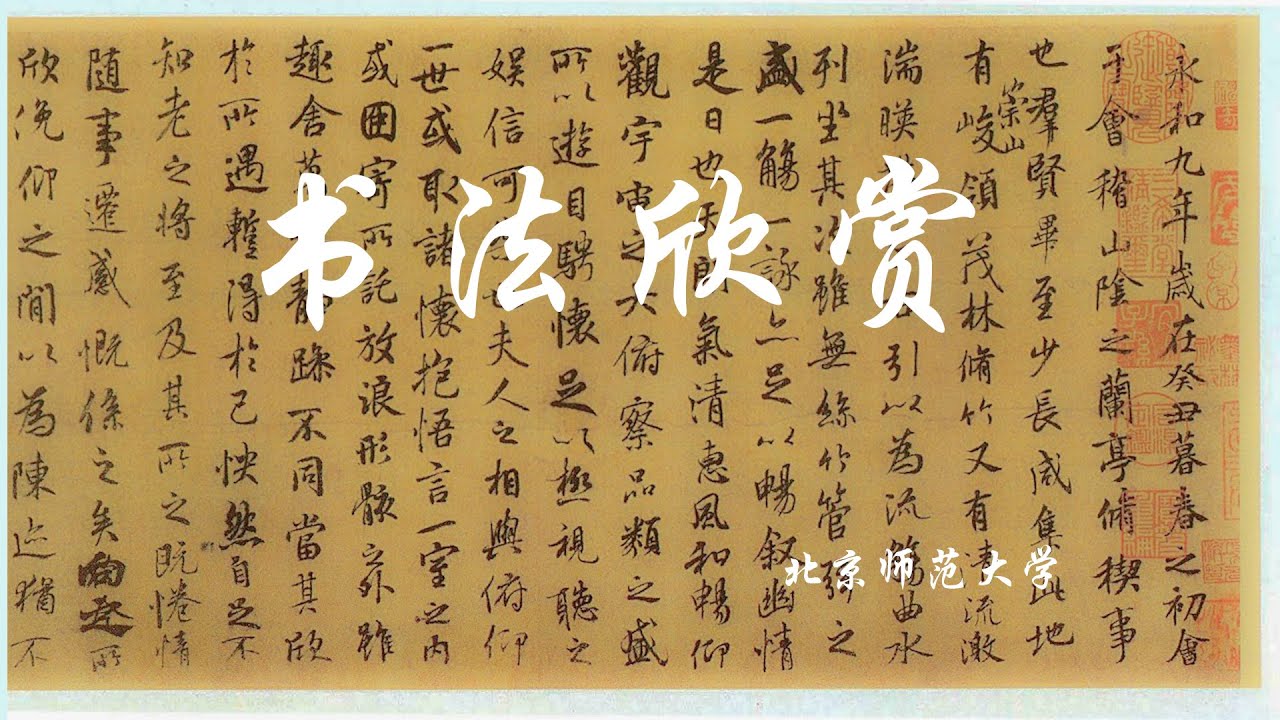 书法欣赏
北京师范大学
永和九年歲在癸丑暮春之初會
于會稽山陰之蘭亭脩稧事
也羣賢畢至少長咸集此地
有崇山峻領茂林脩竹又有清流激
湍暎引以為流觴曲水
列坐其次雖無絲竹管弦之
盛一觴一詠亦足以暢叙幽情
是日也天朗氣清惠風和暢仰
觀宇宙之大俯察品類之盛
所以遊目騁懷足以極視聽之
娱信可也夫人之相與俯仰
一世或取諸懷抱悟言一室之內
或因寄所託放浪形骸之外雖
趣舍萬靜躁不同當其欣
於所遇蹔得於己怏然自足不
知老之將至及其所之既惓情
隨事遷感慨係之矣向之所
欣俛仰之閒以為陳迹猶不